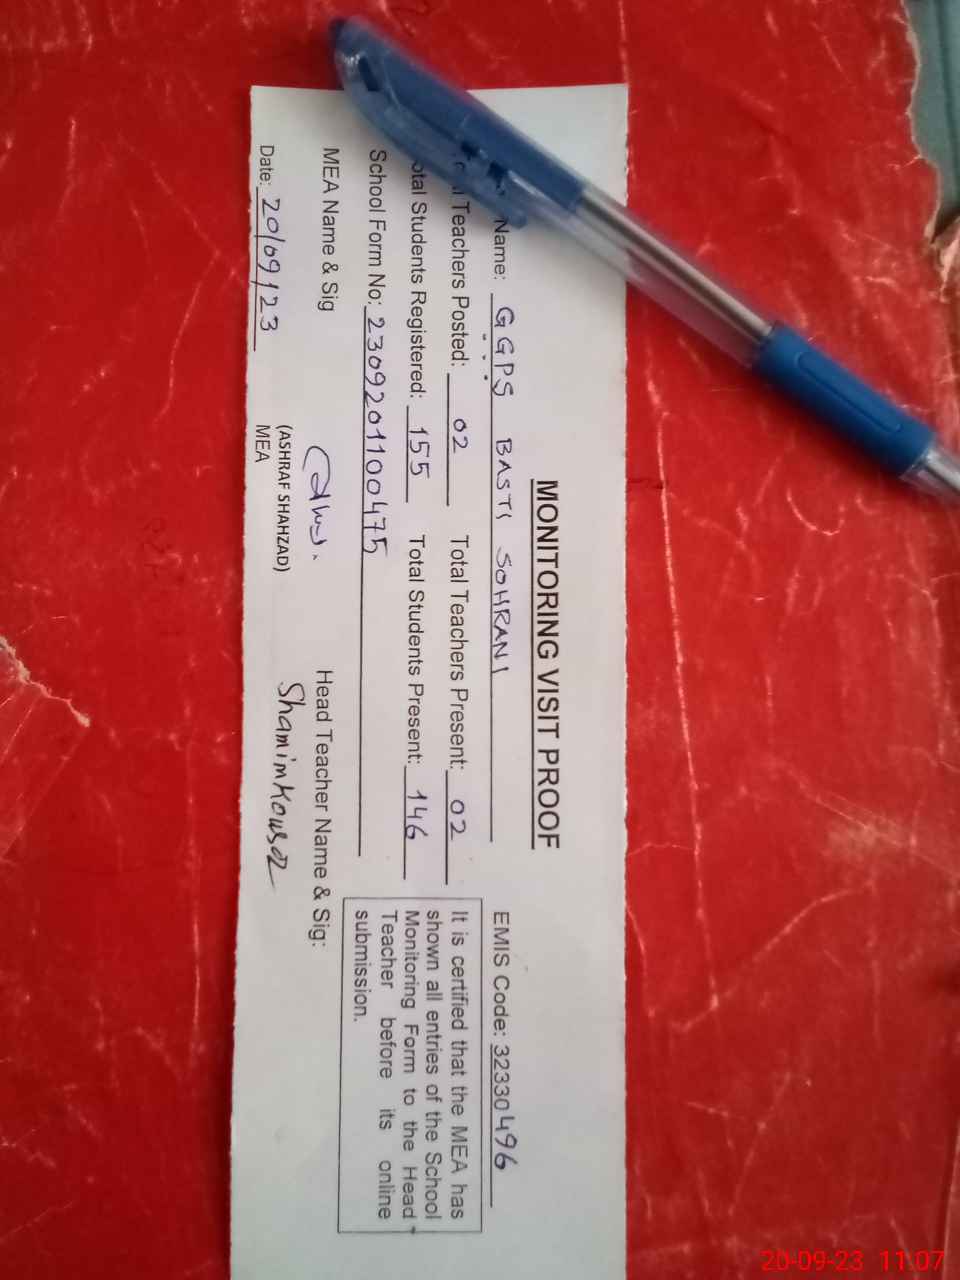 MONITORING VISIT PROOF
Name: GGPS BASTI SOHRANI EMIS Code: 32330496
Teachers Posted: 02 Total Teachers Present: 02
otal Students Registered: 155 Total Students Present: 146
School Form No: 2309201100475
It is certified that the MEA has
shown all entries of the School
Monitoring Form to the Head
Teacher before its online
submission.
MEA Name & Sig Head Teacher Name & Sig:
Shamim Kousar
(ASHRAF SHAHZAD)
Date: 20/09/23 MEA
20-09-23 11:07